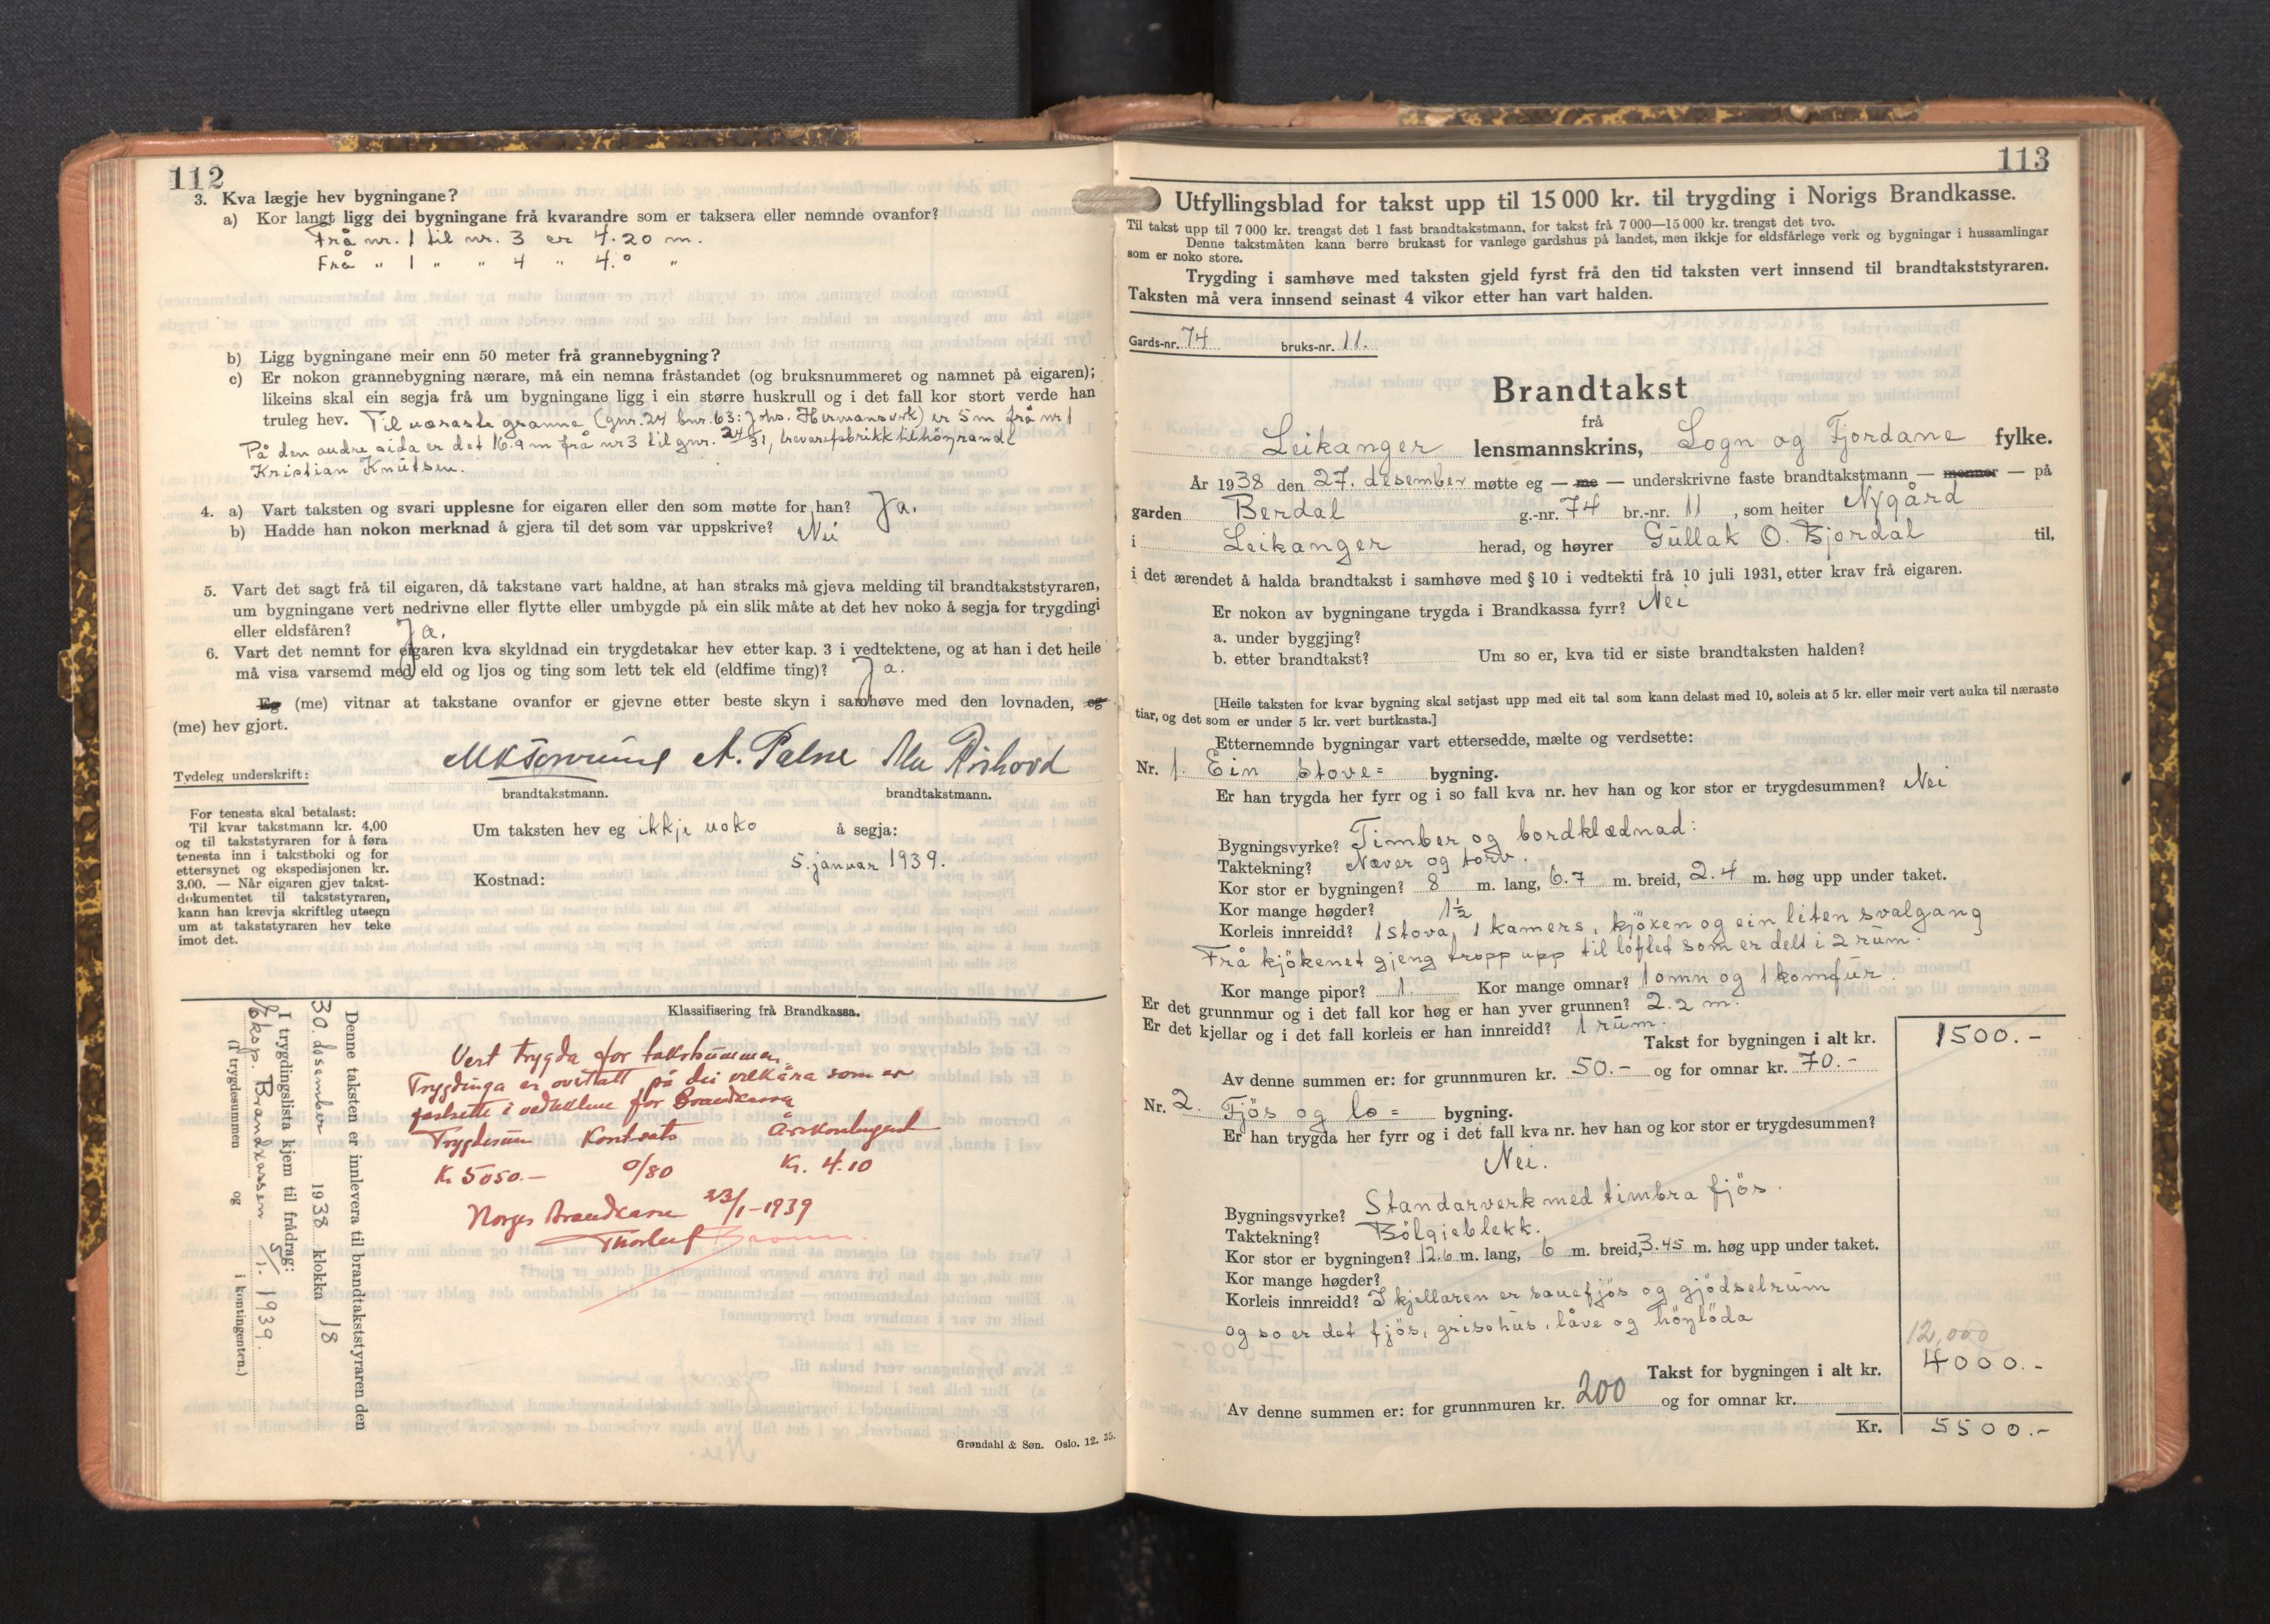 112
3. Kva lægje hev bygningane?
a) Kor langt ligg dei bygningane frå kvarandre som er taksera eller nemnde ovanfor?
Frå nr. 1 til nr. 3 er 4.20 m.
Frå " 1 " " 4 " 4.0 "
b) Ligg bygningane meir enn 50 meter frå grannebygning?
c) Er nokon grannebygning nærare, må ein nemna fråstandet (og bruksnummeret og namnet på eigaren);
likeins skal ein segja frå um bygningane ligg i ein større huskrull og i det fall kor stort verde han
truleg hev. Til næraste granne (gnr. 24 bnr. 63: Johs. Hermansverk) er 5 m frå nr 1
På den andre sida er det 16.9 m frå nr 3 til gnr. 24/31, trevarefabrikk tilhøyrande
Kristian Knutsen.
4. a) Vart taksten og svari upplesne for eigaren eller den som møtte for han? Ja.
b) Hadde han nokon merknad å gjera til det som var uppskrive? Nei
5. Vart det sagt frå til eigaren, då takstane vart haldne, at han straks må gjeva melding til brandtakststyraren,
um bygningane vert nedrivne eller flytte eller umbygde på ein slik måte at det hev noko å segja for trygdingi
eller eldsfåren? Ja.
6. Vart det nemnt for eigaren kva skyldnad ein trygdetakar hev etter kap. 3 i vedtektene, og at han i det heile
må visa varsemd med eld og ljos og ting som lett tek eld (eldfime ting)? Ja.
Eg (me) vitnar at takstane ovanfor er gjevne etter beste skyn i samhøve med den lovnaden, eg
(me) hev gjort.
Tydeleg underskrift: A. Palne
brandtakstmann. brandtakstmann.
For tenesta skal betalast:
Til kvar takstmann kr. 4,00
og til takststyraren for å føra
tenesta inn i takstboki og for
ettersynet og ekspedisjonen kr.
3.00. — Når eigaren gjev takst-
dokumentet til takststyraren,
kann han krevja skriftleg utsegn
um at takststyraren hev teke
imot det.
Um taksten hev eg ikkje noko å segja:
5. januar 1939.
Kostnad:
Denne taksten er innlevera til brandtakststyraren den
30. desember 1938 klokka 18
I trygdingslista kjem til frådrag:
Eksp. Brandkassen 5/1. 1939.
(i trygdesummen og i kontingenten.)
Klassifisering frå Brandkassa.
Vert trygda for takstsummen.
Trygdinga er overtatt på dei vilkåra som er
fastsette i vedtektene for Brandkassa
Trygdesum Kontsats Årskontingent
Kr. 5050.- 0/80 Kr. 4.10
Norges Brandkasse 23/1-1939
Thorleif
Grøndahl & Søn. Oslo. 12. 35.
113
Utfyllingsblad for takst upp til 15 000 kr. til trygding i Norigs Brandkasse.
Til takst upp til 7 000 kr. trengst det 1 fast brandtakstmann, for takst frå 7 000—15 000 kr. trengst det tvo.
Denne takstmåten kann berre brukast for vanlege gardshus på landet, men ikkje for eldsfårlege verk og bygningar i hussamlingar
som er noko store.
Trygding i samhøve med taksten gjeld fyrst frå den tid taksten vert innsend til brandtakststyraren.
Taksten må vera innsend seinast 4 vikor etter han vart halden.
Gards-nr. 74 bruks-nr. 11.
Brandtakst
frå
Leikanger lensmannskrins, Sogn og Fjordane fylke.
År 1938 den 27. desember møtte eg — me — underskrivne faste brandtakstmann — menner — på
garden Berdal g.-nr. 74 br.-nr. 11, som heiter Nygård
i Leikanger herad, og høyrer Gullak O. Bjordal til,
i det ærendet å halda brandtakst i samhøve med § 10 i vedtekti frå 10 juli 1931, etter krav frå eigaren.
Er nokon av bygningane trygda i Brandkassa fyrr? Nei
a. under byggjing?
b. etter brandtakst? Um so er, kva tid er siste brandtaksten halden?
[Heile taksten for kvar bygning skal setjast upp med eit tal som kann delast med 10, soleis at 5 kr. eller meir vert auka til næraste
tiar, og det som er under 5 kr. vert burtkasta.]
Etternemnde bygningar vart ettersedde, mælte og verdsette:
Nr. 1. Ein stove= bygning.
Er han trygda her fyrr og i so fall kva nr. hev han og kor stor er trygdesummen? Nei
Bygningsvyrke? Timber og bordklædnad:
Taktekning? Næver og torv.
Kor stor er bygningen? 8 m. lang, 6.7 m. breid, 2.4 m. høg upp under taket.
Kor mange høgder? 1½
Korleis innreidd? 1 stova, 1 kamers, kjöken og ein liten svalgang
Frå kjökenet gjeng tropp upp til loftet som er delt i 2 rum.
Kor mange pipor? 1. Kor mange omnar? 1 omn og 1 komfur.
Er det grunnmur og i det fall kor høg er han yver grunnen? 2.2 m.
Er det kjellar og i det fall korleis er han innreidd? 1 rum.
Takst for bygningen i alt kr. 1500.-
Av denne summen er: for grunnmuren kr. 50.- og for omnar kr. 70.-
Nr. 2. Fjös og lo= bygning.
Er han trygda her fyrr og i det fall kva nr. hev han og kor stor er trygdesummen?
Nei.
Bygningsvyrke? Standarverk med timbra fjös.
Taktekning? Bölgjeblekk.
Kor stor er bygningen? 12.6 m. lang, 6 m. breid, 3.45 m. høg upp under taket.
Kor mange høgder?
Korleis innreidd? I kjellaren er sauefjös og gjödselrum
og so er det fjös, grisehus, låve og höylöda
12,000
Takst for bygningen i alt kr. 4000.-
Av denne summen er: for grunnmuren kr. 200 og for omnar kr.
Kr. 5500.-